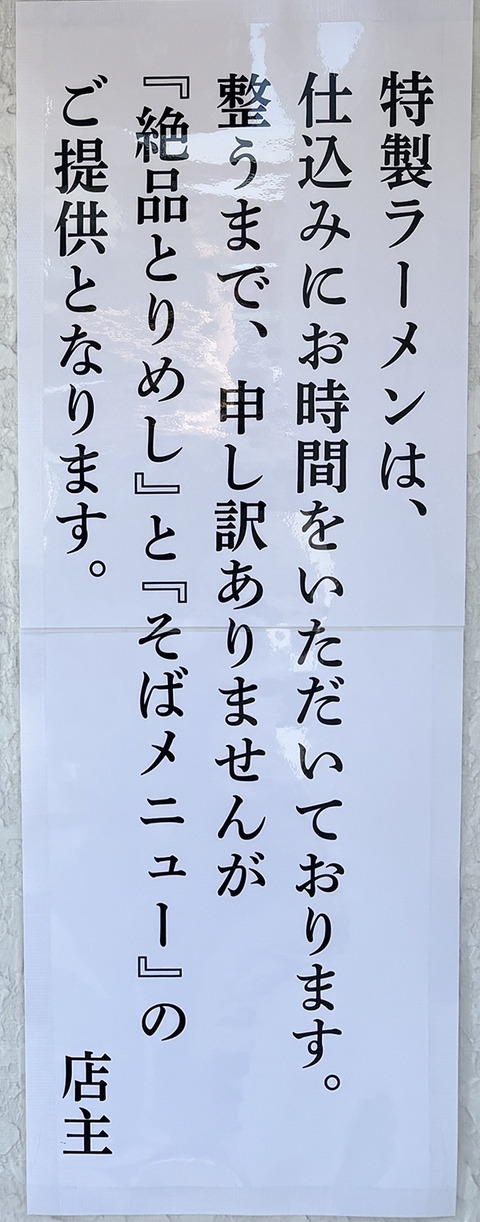 特製ラーメンは、
仕込みにお時間をいただいております。
整うまで、申し訳ありませんが
『絶品とりめし』と『そばメニュー』の
ご提供となります。
店主